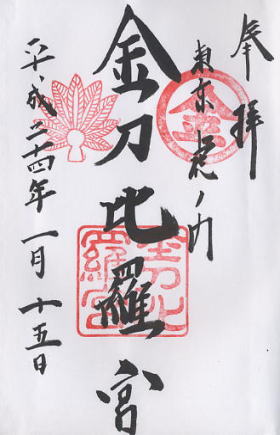 奉拝
東京虎ノ門
金刀比羅宮
平成二十四年一月十五日
金
金刀比羅宮